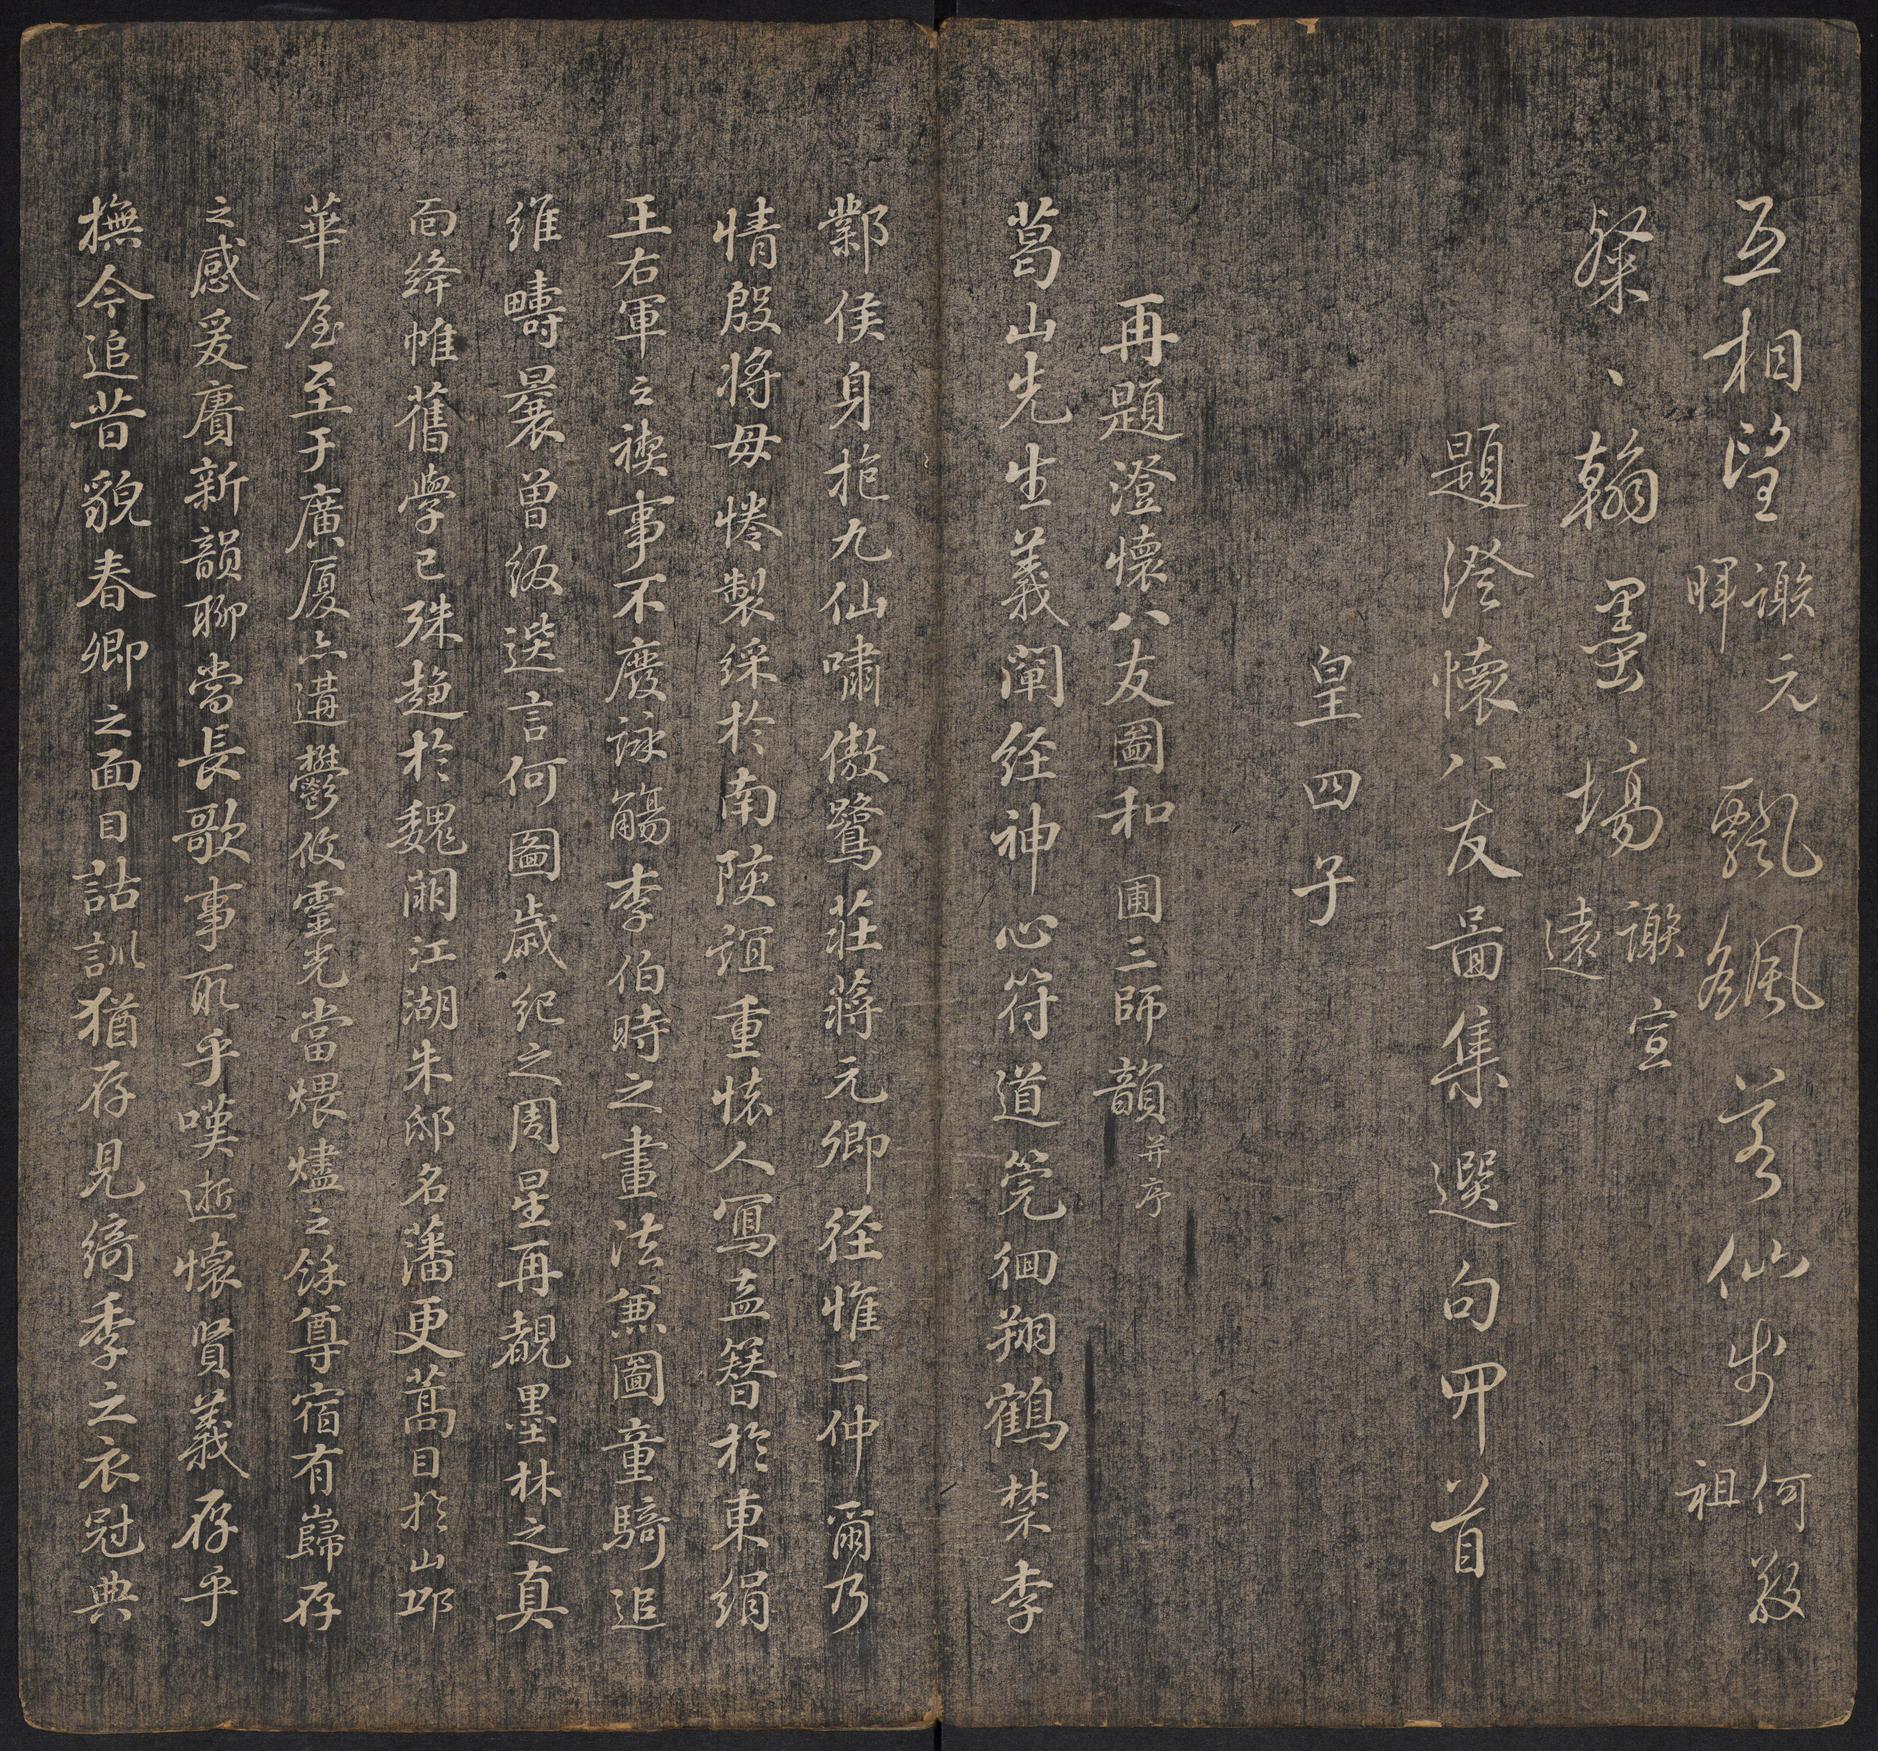 互相望謝元暉飄颻若仙步何敬祖
粲、翰墨場謝宣遠
題澄懷八友圖集選句四首
皇四子
再題澄懷八友圖和圃三師韻并序
葛山先生義闡經神心符道筦徊翔鶴禁李
鄴侯身抱九仙嘯傲鷺莊蔣元卿徑惟二仲爾乃
情殷將母惓製綵於南陔誼重懷人寫盍簪於東絹
王右軍之禊事不廢詠觴李伯時之畫法兼圖童騎追
維疇曩曾綴送言何圖歲紀之周星再覩墨林之真
面絳帷舊學已殊趨於魏闕江湖朱邸名藩更蒿目於山邱
華屋至于廣厦亦遘鬱攸靈光當煨燼之餘尊宿有巋存
之感爰賡新韻聊當長歌事取乎嘆逝懷賢義存乎
撫今追昔貌春卿之面目詁訓猶存見綺季之衣冠典